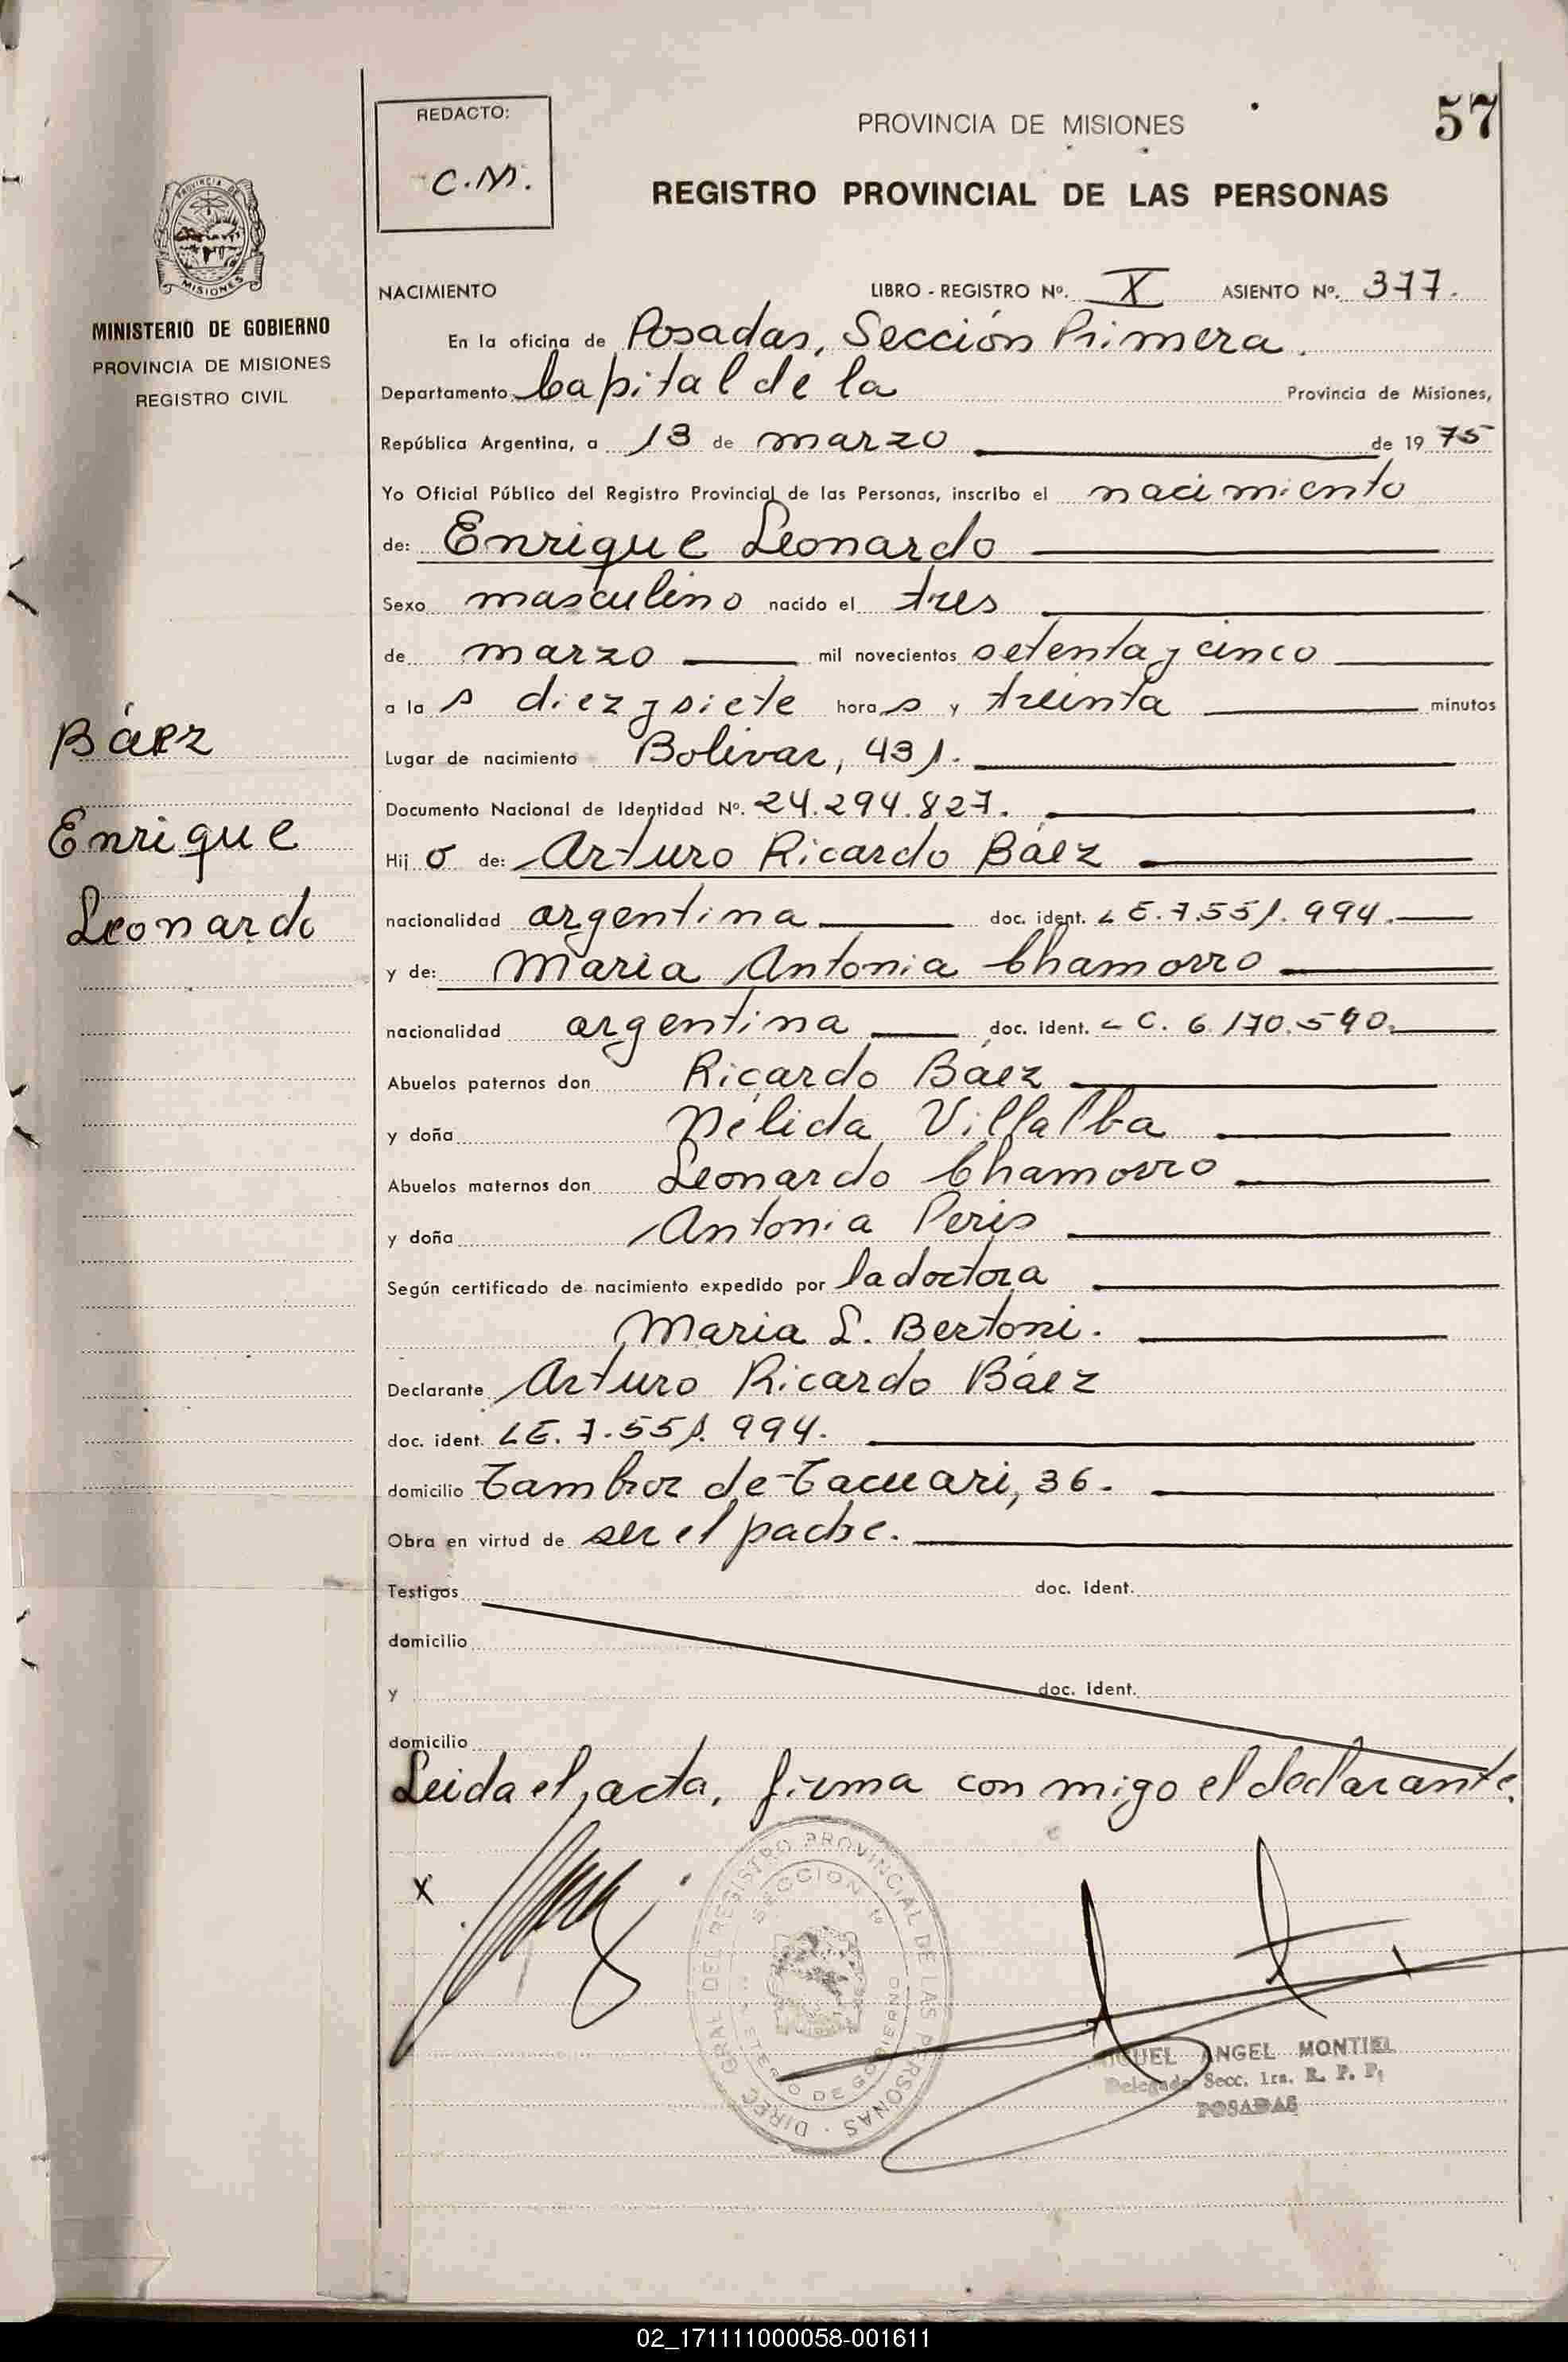 57
REDACTO:
C.M.
PROVINCIA DE MISIONES
REGISTRO PROVINCIAL DE LAS PERSONAS
PROVINCIA DE
MISIONES
MINISTERIO DE GOBIERNO
PROVINCIA DE MISIONES
REGISTRO CIVIL
Báez
Enrique
Leonardo
NACIMIENTO LIBRO - REGISTRO Nº. X ASIENTO Nº. 377.
En la oficina de Posadas, Sección Primera.
Departamento Capital de la Provincia de Misiones,
República Argentina, a 13 de marzo de 1975
Yo Oficial Público del Registro Provincial de las Personas, inscribo el nacimiento
de: Enrique Leonardo
Sexo masculino nacido el tres
de marzo mil novecientos setenta y cinco
a las diez y siete horas y treinta minutos
Lugar de nacimiento Bolivar, 431.
Documento Nacional de Identidad Nº. 24.294.827.
Hijo de: Arturo Ricardo Báez
nacionalidad argentina doc. ident. LE. 7.551.994.
y de: Maria Antonia Chamorro
nacionalidad argentina doc. ident. LC. 6.170.590.
Abuelos paternos don Ricardo Báez
y doña Nélida Villalba
Abuelos maternos don Leonardo Chamorro
y doña Antonia Peris
Según certificado de nacimiento expedido por la doctora
Maria L. Bertoni.
Declarante Arturo Ricardo Báez
doc. ident. LE. 7.551.994.
domicilio Tambor de Tacuari, 36.
Obra en virtud de ser el padre.
Testigos doc. ident.
domicilio
y doc. ident.
domicilio
Leida el acta, firma con migo el declarante.
X
DIREC. GRAL DEL REGISTRO PROVINCIAL DE LAS PERSONAS
SECCION 1a
DE GOBIERNO
ANGEL MONTIEL
Delegado Secc. 1ra. R. P. P.
POSADAS
02_171111000058-001611